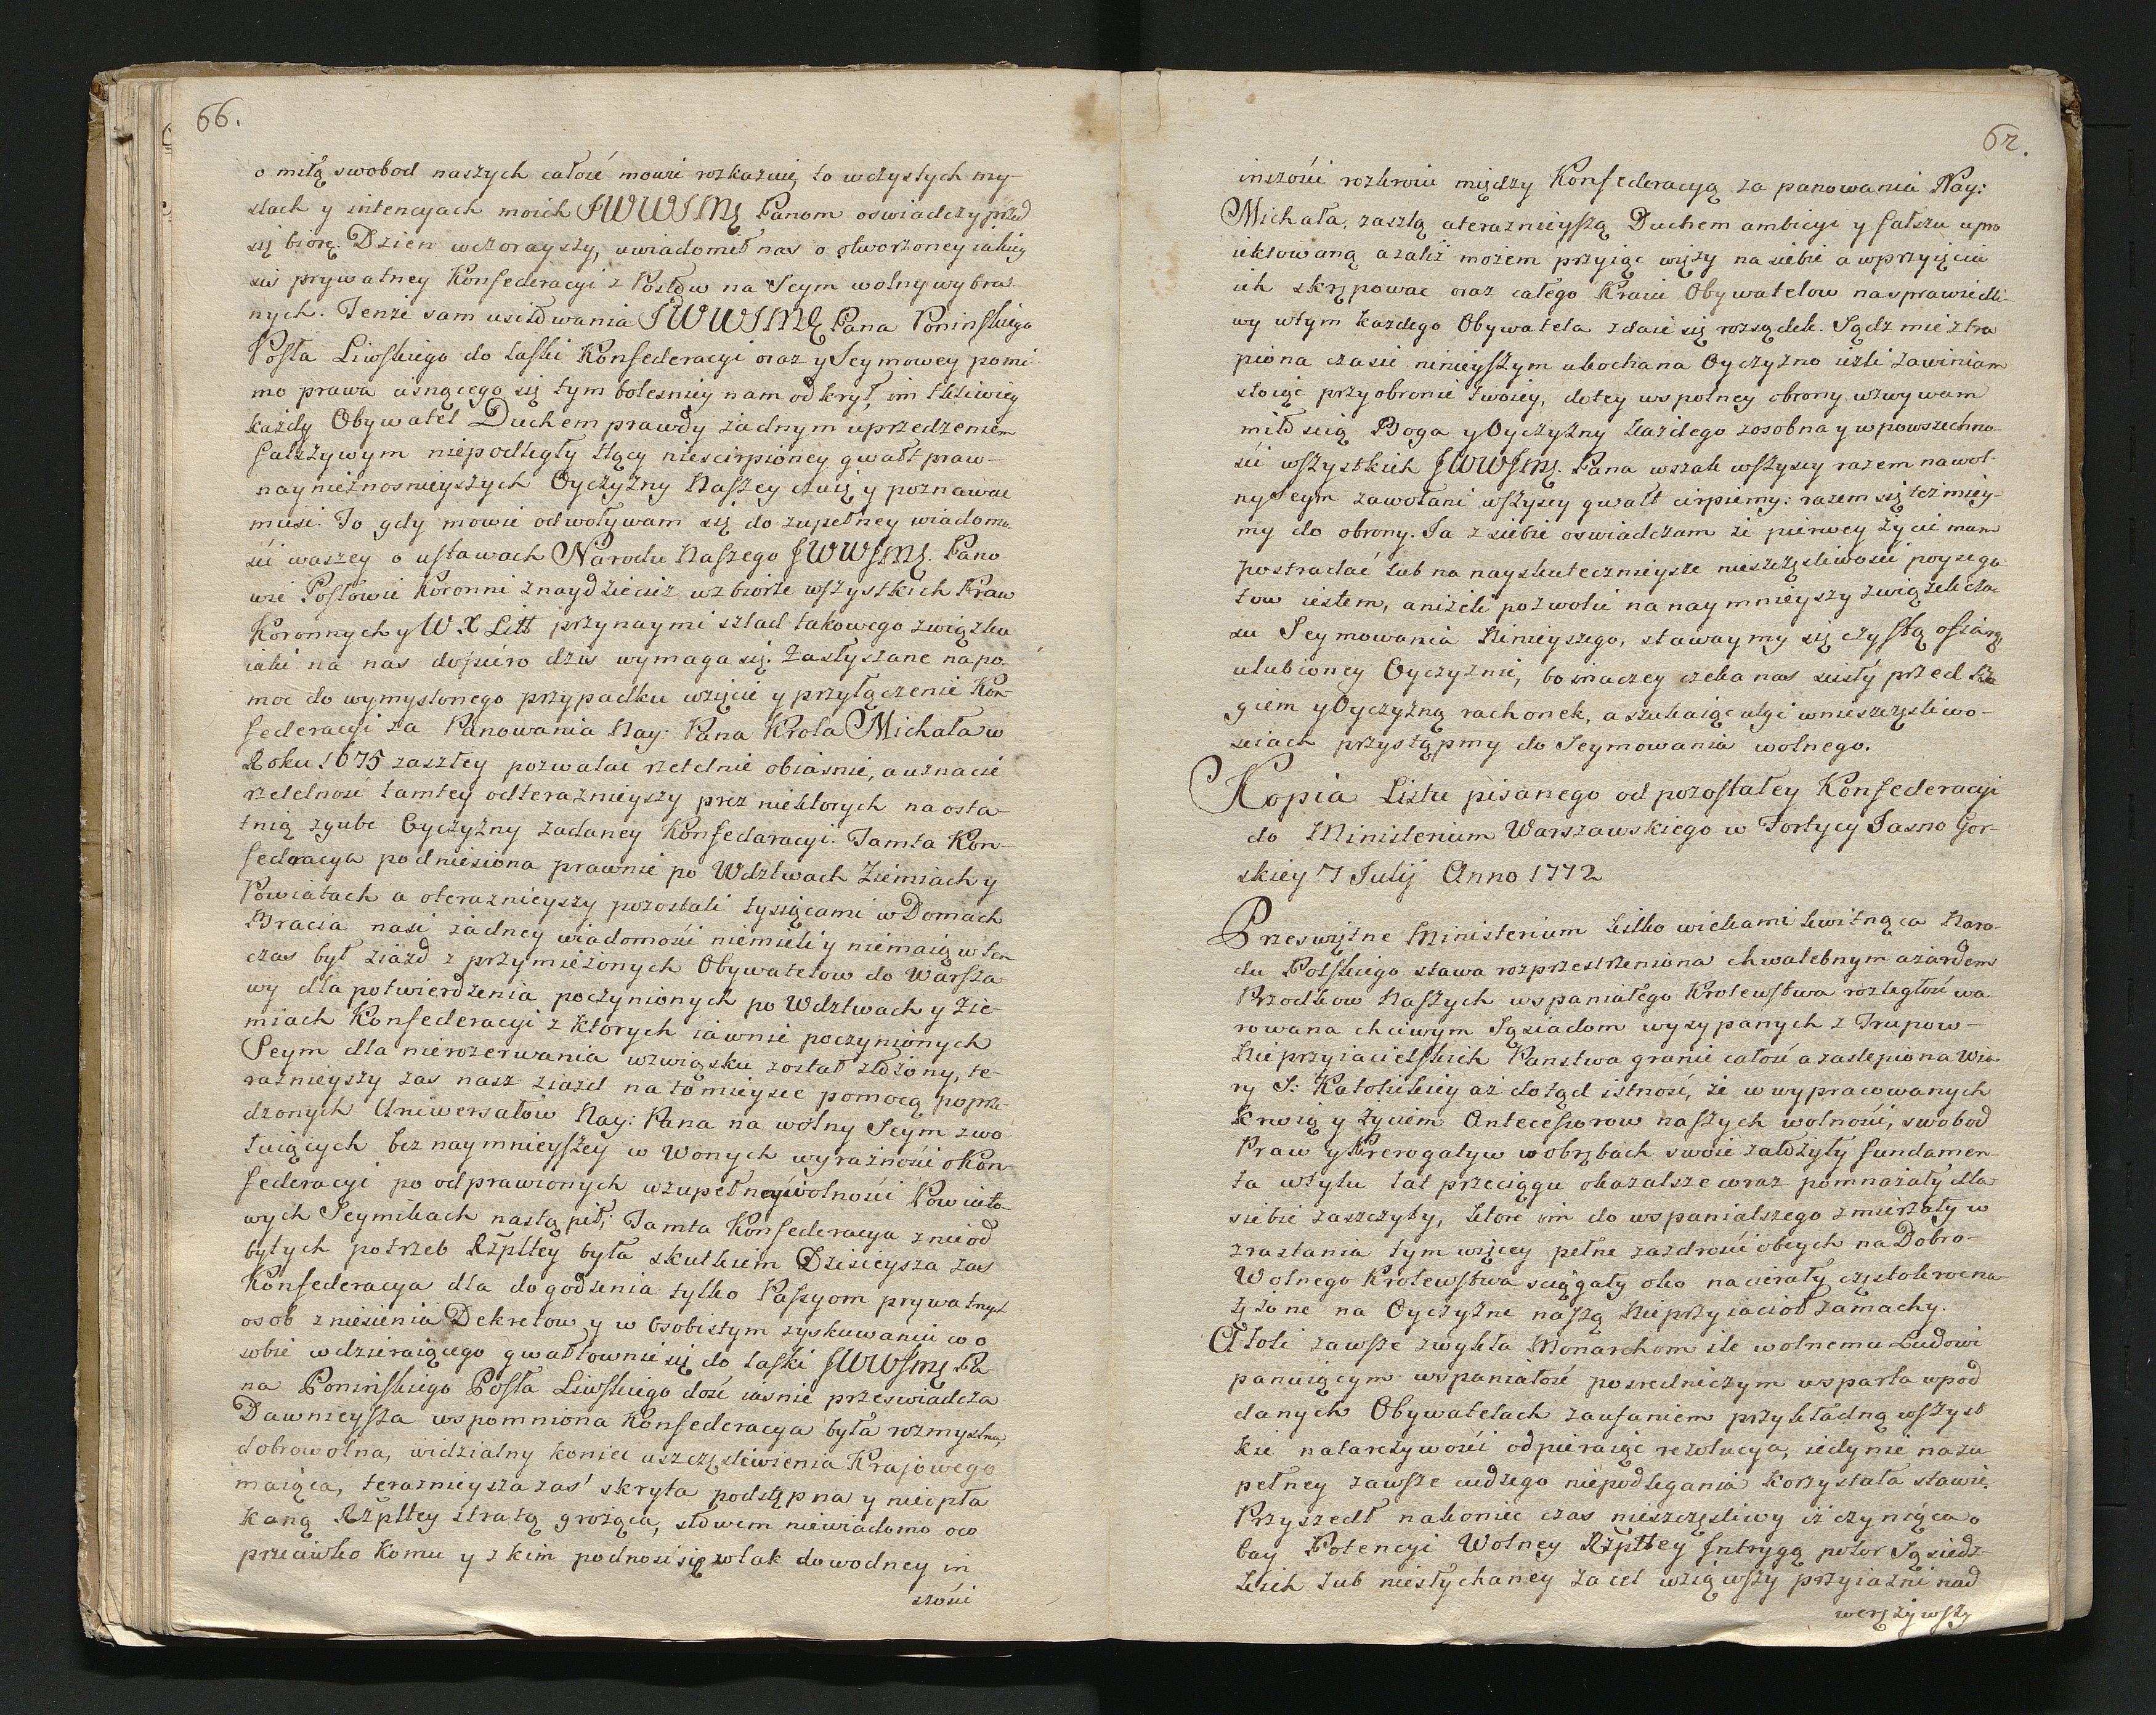 66.
o miłą swobod naszych całość mowić rozkazuie, to w czystych my-
slach y intencyach moich JWWJMĘ Panom oswiadczy przed
się biorę. Dzien wczorayszy, uwiadomił nas o otworzoney iakiey
sis prywatney Konfederacyi z Posłow na Seym wolny wybra-
nych. Tenże sam usiłowania JWWJMĘ Pana Poninskiego
Posła Liwskiego do laski Konfederacyi oraz y Seymowey pomi-
mo prawa cisnącego się tym bolesniey nam odkrył, im tkliwiey
każdy Obywatel Duchem prawdy żadnym uprzedzeniem
fałszywym niepodległy tłący niescirpioney gwałt praw
naynieznosnieyszych Oyczyzny Naszey czuię y poznawac
musi. To gdy mowie odwoływam się do zupełney wiadomo
ści waszey o ustawach Narodu Naszego JWWJMĘ. Pano
wie Posłowie Koronni znaydziecież w zbiorze wszystkich Praw
Koronnych y W. X Litt przynaymi szlad takowego związku
iaki na nas dopiero dzis wymaga się. Zasłyszane na po-
moc do wymyslonego przypadku wzięcie y przyłączenie Kon-
federacyi za Panowania Nay: Pana Krola Michała w
Roku 1675 zaszłey pozwalac rzetelnie obiasnie, a uznacie
rzetelność tamtey od teraznieyszy prez niektorych na osta
tnią zgubę Oyczyzny zadaney Konfedaracyi. Tamta Kon-
federacya podniesiona prawnie po Wdztwach Ziemiach y
Powiatach a oterazniejszy pozostali tysiącami w Domach
Bracia nasi żadney wiadomości niemieli y niemaią w ten
czas był ziazd z przymierzonych Obywatelow do Warsza
wy dla potwierdzenia poczynionych po Wdztwach y Zie-
miach Konfederacyi z ktorych iawnie poczynionych
Seym dla nierozerwania w związku został złożony, te-
raznieyszy zas nasz ziazd na to mieysce pomocą poprze-
dzonych Uniwersałow Nay: Pana na wolny Seym zwo
łuiących bez naymnieyszey w Wonych wyraźności o Kon
federacyi po odprawionych w zupełney wolności Powiato
wych Seymikach nastąpił; Tamta Konfederacya z nieod
bytych potrzeb Rzpltey była skutkiem Dzisieysza zas
Konfederacya dla dogodzenia tylko Passyom prywatnych
osob zniesienia Dekretow y w osobistym zyskuwaniu w o
sobie wdzieraiącego gwałtownie się do laski JWWJMĘ Pa
na Poninskiego Posła Liwskiego dość iasnie przeswiadcza
Dawnieysza wspomniona Konfederacya była rozmyslna,
dobrowolna, widzialny koniec uszczęsliwienia Krajowego
maiąca, teraznieysza zas skryta podstępna y nieopła
kaną Rzpltey stratą grożąca, słowem niewiadomo oco
przeciwko komu y z kim podnosi się w tak dowodney in
szości
67.
inszości rozbroiu między Konfederacyą za panowania Nay:
Michała, zaszłą a teraznieyszą Duchem ambicyi y fałszu upro
iektowaną azaliż możem przyiąc więzy na siebie a w przyięciu
ich skrępowac oraz całego Kraiu Obywatelow na sprawiedli-
wy w tym każdego Obywatela zdaie się rozsądek. Sądz mie ztra
piona czasie ninieyszym ukochana Oyczyzno ieżli zawiniam
stoiąc przy obronie twoiey, do tey wspolney obrony wzywam
miłoscią Boga y Oyczyzny każdego zosobna y w powszechno-
ści wszystkich JWWJMĘ. Pana wszak wszyscy razem na wol-
ny Seym zawołani wszyscy gwałt cirpiemy: razem się też miey-
my do obrony. Ja z siebie oswiadczam że pierwey życie mam
postradać lub na nayskutecznieysze nieszczęsliwosci poyscgo
tow iestem, aniżeli pozwolić na naymnieyszy związek cza-
su Seymowania Ninieyszego, stawaymy się czystą ofiarą
ulubioney Oyczyznie, bo inaczey czeka nas scisły przed Bo
giem y Oyczyzną rachonek, a szukaiąc ulgi w nieszczęsliwo-
sciach przystąpmy do Seymowania wolnego.
Kopia Listu pisanego od pozostałey Konfederacyi
do Ministerium Warszawskiego w Fortycy Jasno Gor-
skiey 7 Julij Anno 1772
Przeswiętne Ministerium kilko wiekami kwitnąca Naro-
du Polskiego sława rozprzestrzeniona chwalebnym azardem
Przodkow Naszych wspaniałego Krolewstwa rozległość wa
rowana chciwym Sąsiadom wysypanych z Trupow
Nieprzyiacielskich Panstwa granic całość a zaslepiona Wia-
ry S: Katolickiey aż dotąd istność, że w wypracowanych
Krwią y życiem Antecessorow naszych wolności, swobod
Praw y Prerogatyw w obrębach swoie założyły fundamen
ta w tylu lat przeciągu okazalsze coraz pomnażały dla
siebie zaszczyty, ktore im do wspanialszego zmierzały w
zrastania tym więcey pełne zazdrości obcych na Dobro-
Wolnego Krolewstwa sciągały oko nacierały częstokroc na
tężone na Oyczyzne naszą Nieprzyiacioł zamachy.
Atoli zawsze zwykła Monarchom ile wolnemu Ludowi
panuiącym wspaniałość posredniczym wsparta w pod
danych Obywatelach zaufaniem przykładną wszyst
kie natarczywości odpieraiąc rezolucya, iedynie na zu
pełney zawsze cudzego niepodlegania korzystała sławie.
Przyszedł nakoniec czas nieszczęsliwy iż czyniąca o
bay Potencyi Wolney Rzpltey Intrygą potor Sąsiedz-
kich lub niesłychaney za cel wziąwszy przyiazni nad
werężywszy